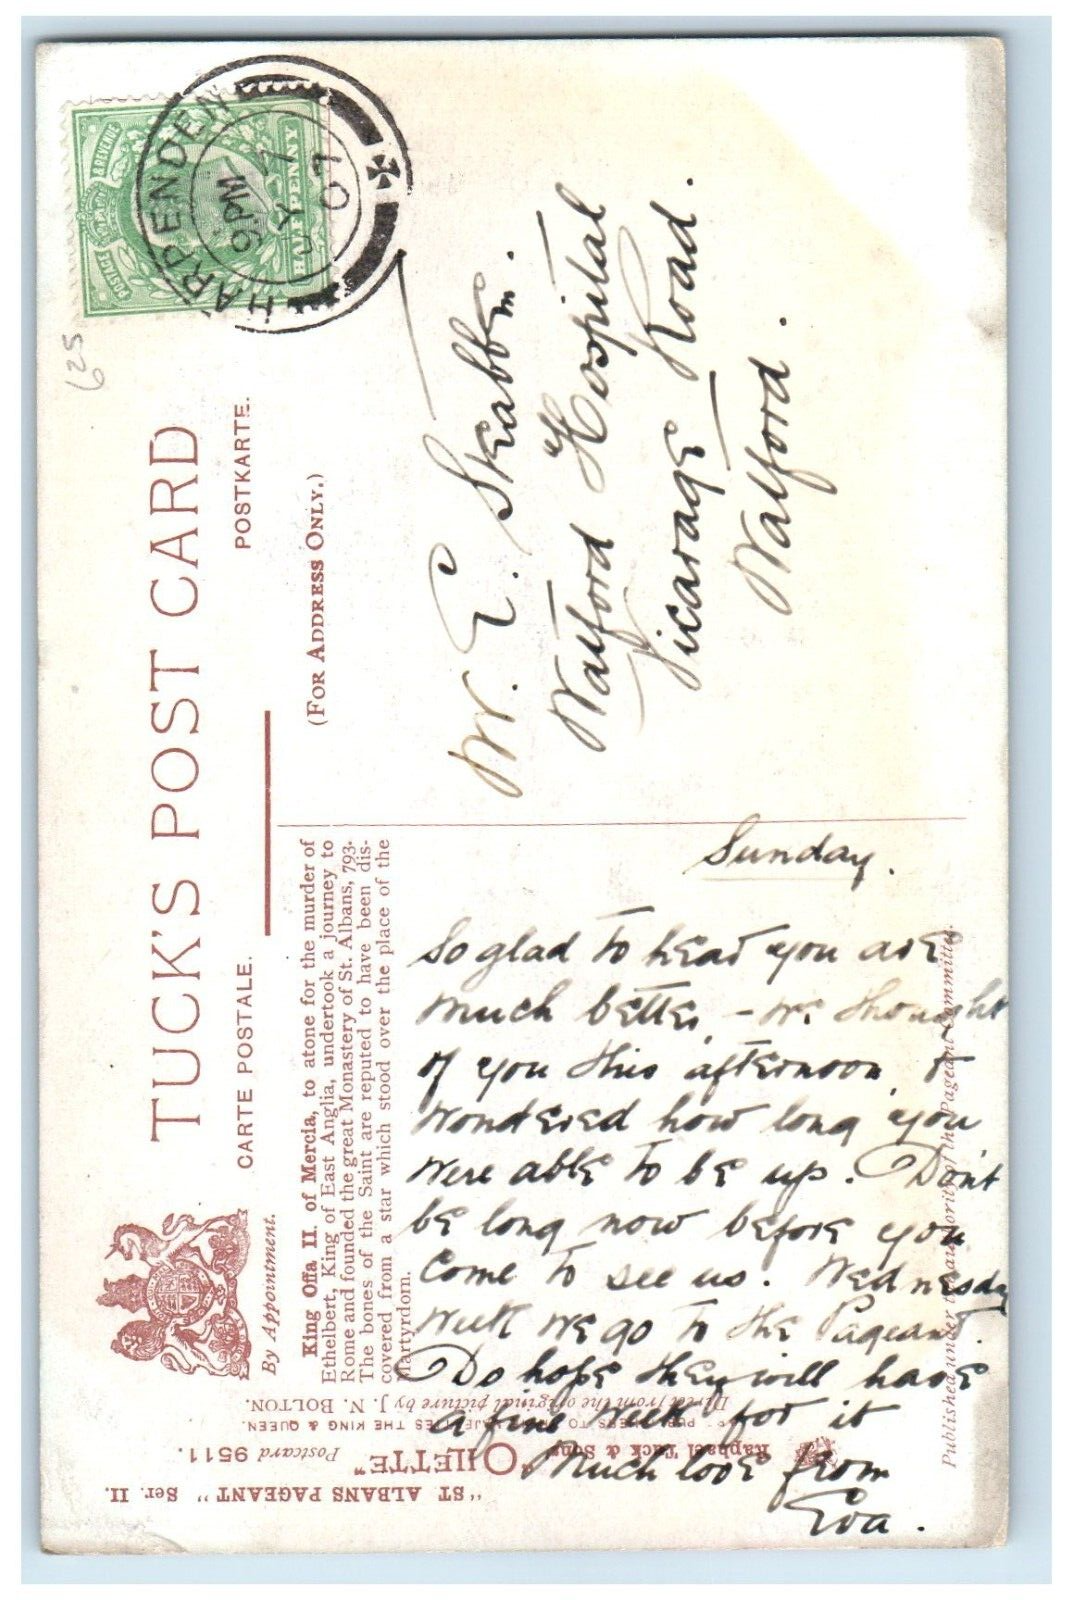 TUCK'S POST CARD
CARTE POSTALE.
POSTKARTE.
By Appointment.
(FOR ADDRESS ONLY.)
King Offa II. of Mercia, to atone for the murder of
Ethelbert, King of East Anglia, undertook a journey to
Rome and founded the great Monastery of St. Albans, 793.
The bones of the Saint are reputed to have been dis-
covered from a star which stood over the place of the
Martyrdom.
"ST ALBANS PAGEANT" Ser. II.
"OILETTE" Postcard 9511.
Raphael Tuck & Sons
PUBLISHERS TO THEIR MAJESTIES THE KING & QUEEN.
Direct from the original picture by J. N. BOLTON.
Published under the authority of the Pageant Committee.
POSTAGE & REVENUE
HALFPENNY
HARPENDEN
9 PM
JY 7
07
625
W. E. Skabbem.
Watford Hospital
Vicarage Road.
Watford.
Sunday.
So glad to hear you are
much better, - we thought
of you this afternoon, &
wondered how long you
were able to be up. Don't
be long now before you
come to see us. Wednesday
week we go to the Pageant.
Do hope they will have
a fine week for it
Much love from
Eva.